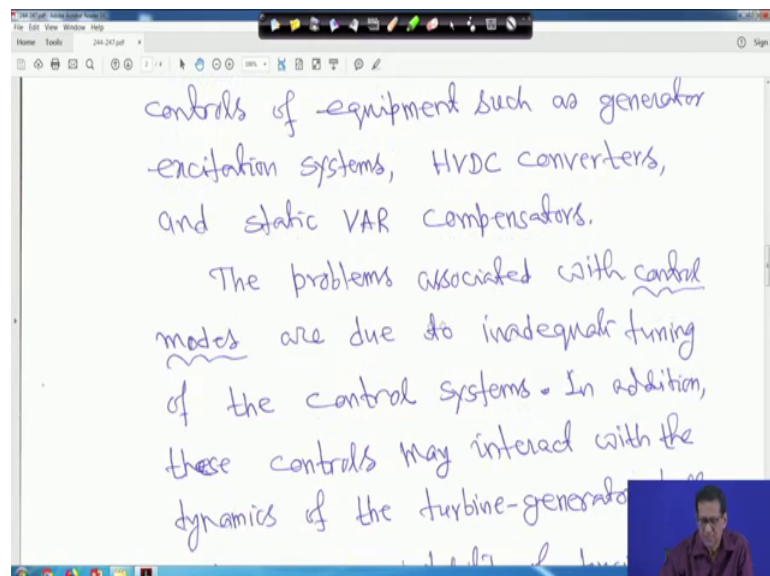 244-247.pdf - Adobe Acrobat Reader DC
File Edit View Window Help
Home Tools 244-247.pdf × Sign
2 / 4
controls of equipment such as generator
excitation systems, HVDC converters,
and static VAR compensators.
The problems associated with control
modes are due to inadequate tuning
of the control systems. In addition,
these controls may interact with the
dynamics of the turbine-generator